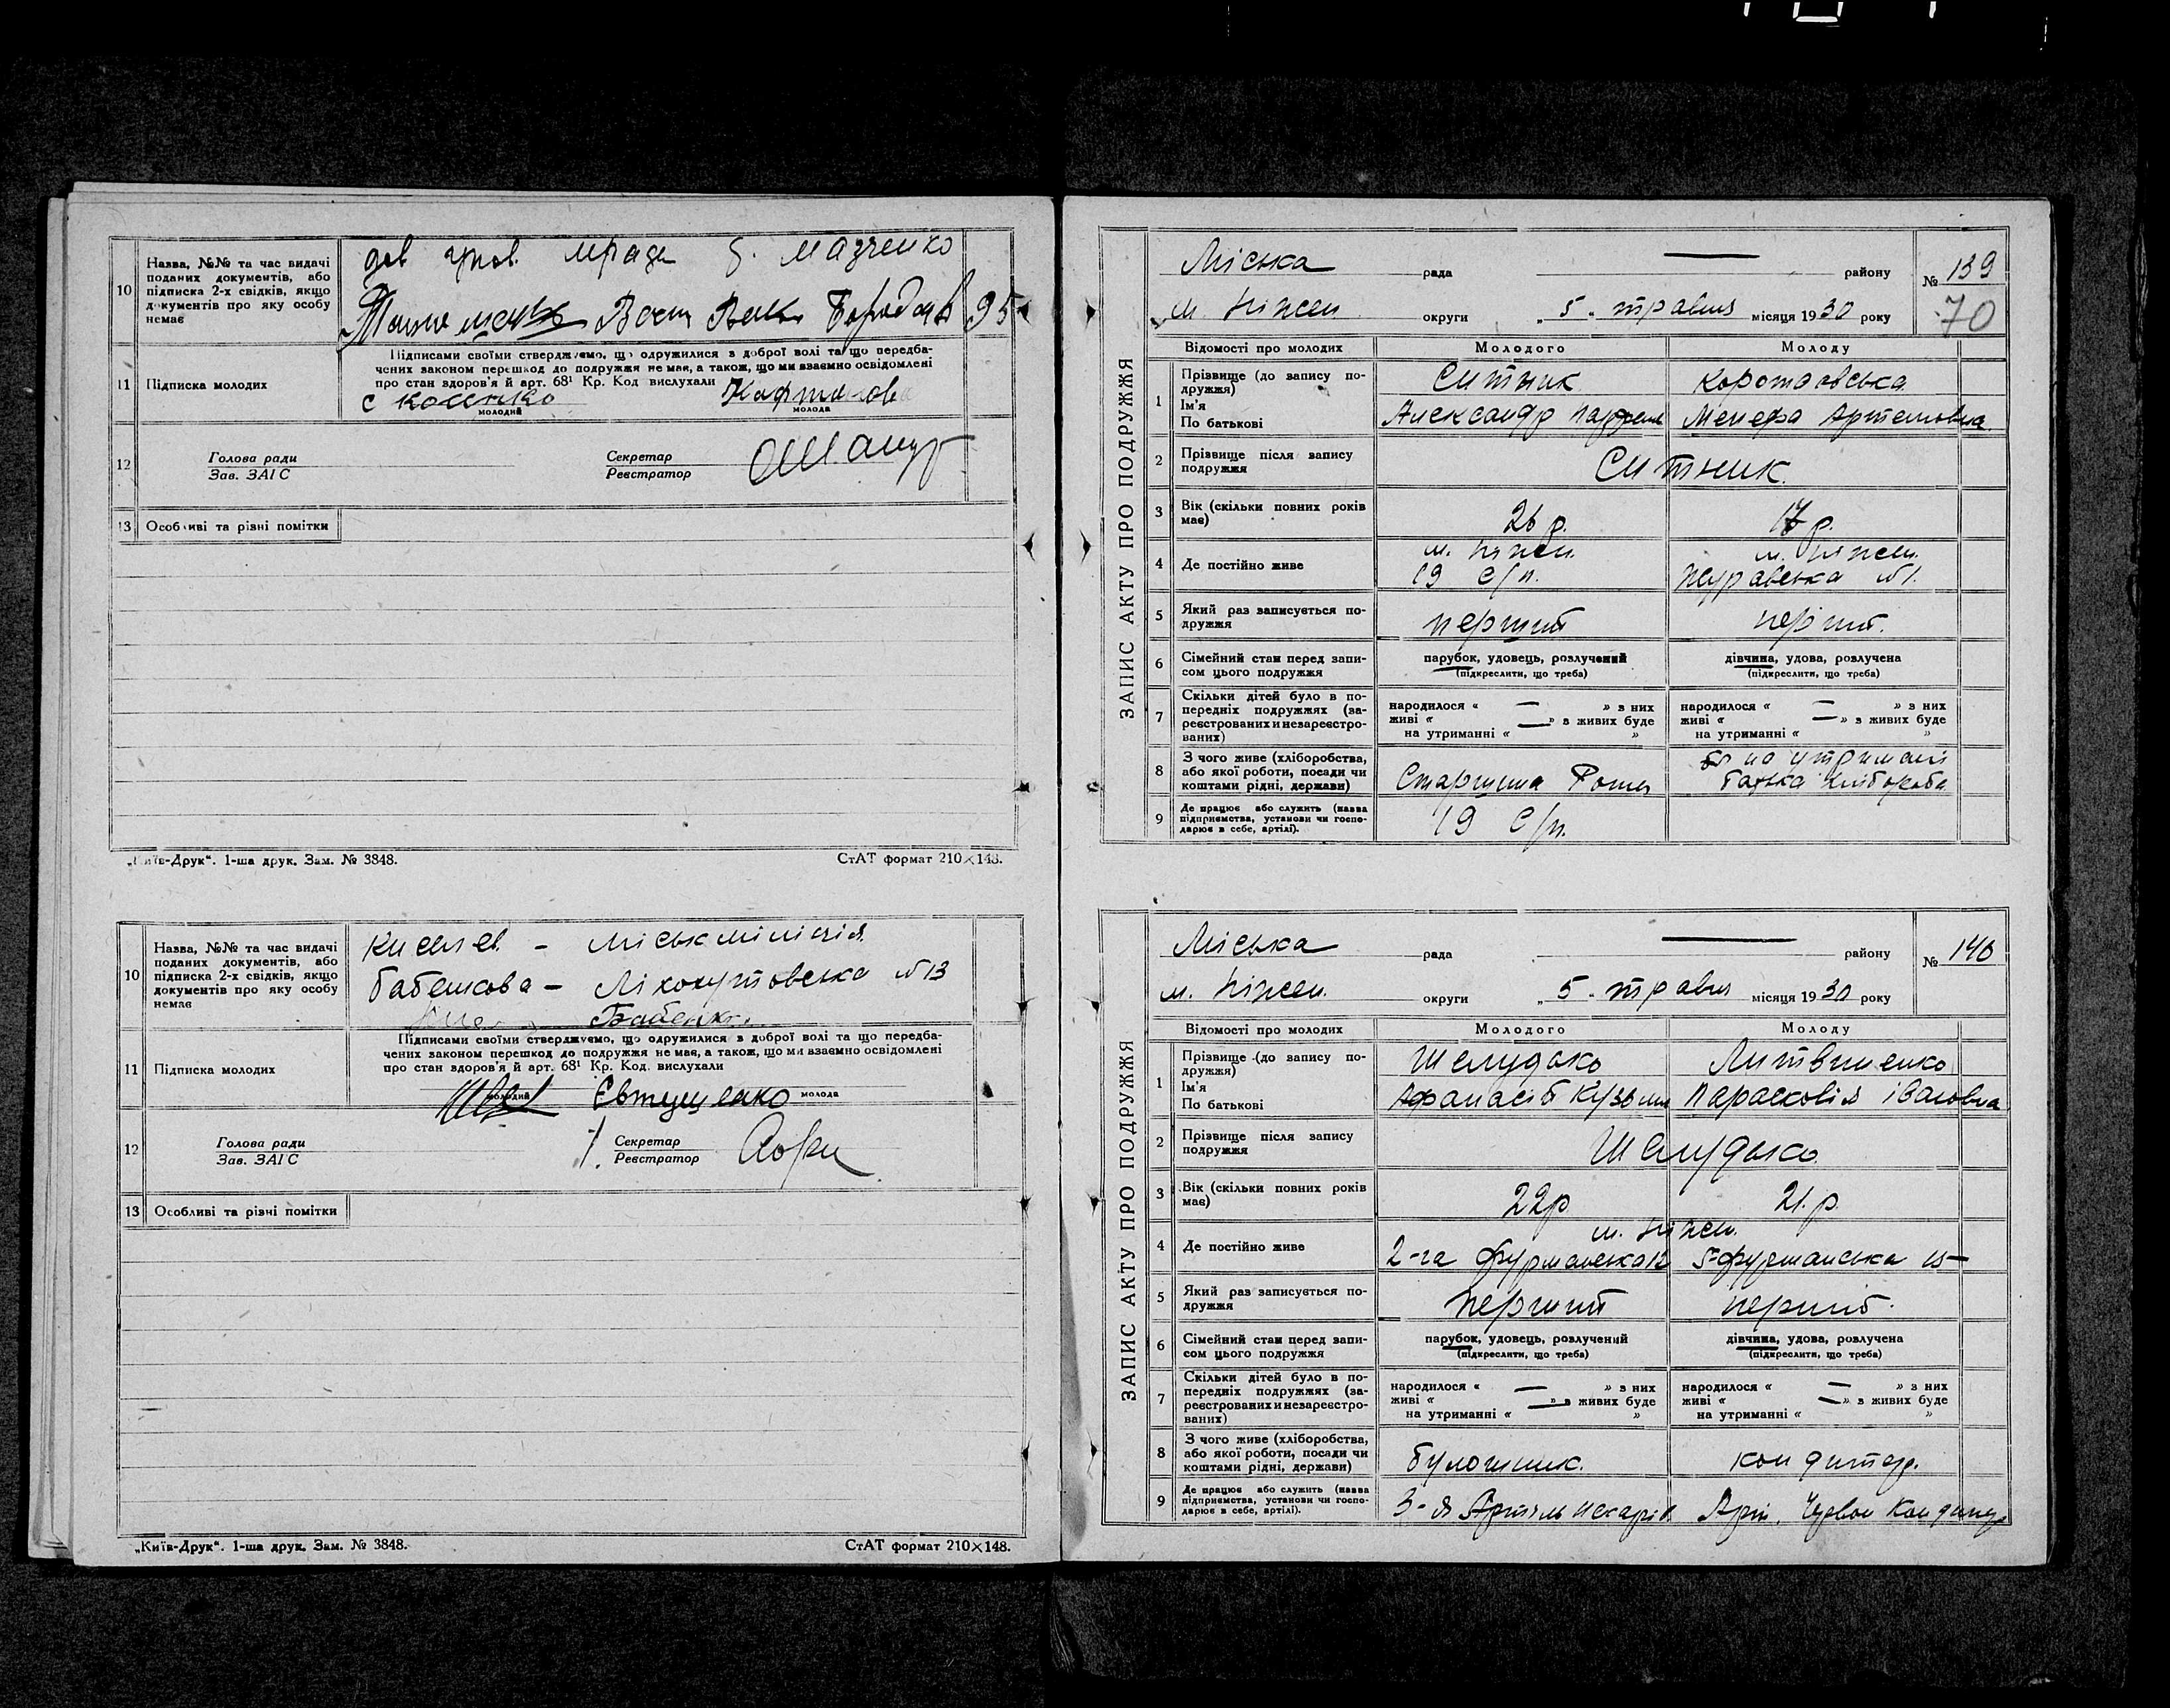 10 Назва, №№ та час видачі поданих документів, або підписка 2-х свідків, якщо документів про яку особу немає
95
11 Підписка молодих
Підписами своїми стверджуємо, що одружилися з доброї волі та що передба-
чених законом перешкод до подружжя не має, а також, що ми взаємно освідомлені
про стан здоров'я й арт. 68¹ Кр. Код вислухали
молодий молода
12 Голова ради Секретар
Зав. ЗАГС Реєстратор
13 Особливі та різні помітки
„Київ-Друк“. 1-ша друк. Зам. № 3848. СтАТ формат 210×148.
10 Назва, №№ та час видачі
поданих документів, або
підписка 2-х свідків, якщо
документів про яку особу
немає
№ 13
Підписами своїми стверджуємо, що одружилися з доброї волі та що передба-
чених законом перешкод до подружжя не має, а також, що ми взаємно освідомлені
11 Підписка молодих про стан здоров'я й арт. 68¹ Кр. Код. вислухали
молодий Євтушенко молода
12 Голова ради Секретар
Зав. ЗАГС Реєстратор
13 Особливі та різні помітки
„Київ-Друк“. 1-ша друк. Зам. № 3848. СтАТ формат 210×148.
ЗАПИС АКТУ ПРО ПОДРУЖЖЯ
Міська рада — району № 139
м. Ніжен округи „5“ травня місяця 1930 року 70
Відомості про молодих Молодого Молоду
1 Прізвище (до запису по-
дружжя) Ситник Коротаєвська
Ім'я
По батькові Александр Менефа Артемовна
2 Прізвище після запису
подружжя Ситник.
3 Вік (скільки повних років
має) 26 р. 17 р.
4 Де постійно живе м. Ніжен м. Ніжен.
19 с/п. Журавська №1.
5 Який раз записується по-
дружжя перший перший.
6 Сімейний стан перед запи- парубок, удовець, розлучений дівчина, удова, розлучена
сом цього подружжя (підкреслити, що треба) (підкреслити, що треба)
7 Скільки дітей було в по-
передніх подружжях (за- народилося « — » з них народилося « — » з них
реєстрованих и незареєстро- живі « —» з живих буде живі « —» з живих буде
ваних) на утриманні « » на утриманні « »
8 З чого живе (хліборобства,
або якої роботи, посади чи
коштами рідні, держави) Старшина Роти на утримані
батька хлібороба
9 Де працює або служить (назва
підприємства, установи чи госпо-
дарює в себе, артілі). 19 с/п.
ЗАПИС АКТУ ПРО ПОДРУЖЖЯ
Міська рада — району № 140
м. Ніжен. округи „5“ травня місяця 1930 року
Відомості про молодих Молодого Молоду
1 Прізвище (до запису по-
дружжя) Шелудько Литвиненко
Ім'я
По батькові Афанасій Кузьми Парасковія Івановна
2 Прізвище після запису
подружжя Шелудько.
3 Вік (скільки повних років
має) 22р 21.р.
м. Ніжен.
4 Де постійно живе 2-га Фурманська 12 5-Фурманська
5 Який раз записується по-
дружжя перший перший.
6 Сімейний стан перед запи- парубок, удовець, розлучений дівчина, удова, розлучена
сом цього подружжя (підкреслити, що треба) (підкреслити, що треба)
7 Скільки дітей було в по-
передніх подружжях (за- народилося « — » з них народилося « — » з них
реєстрованих и незареєстро- живі « —» з живих буде живі « —» з живих буде
ваних) на утриманні « » на утриманні « »
8 З чого живе (хліборобства,
або якої роботи, посади чи
коштами рідні, держави) булошник. кондитер.
9 Де працює або служить (назва
підприємства, установи чи госпо-
дарює в себе, артілі). 3-я Артіль пекарів Арт.